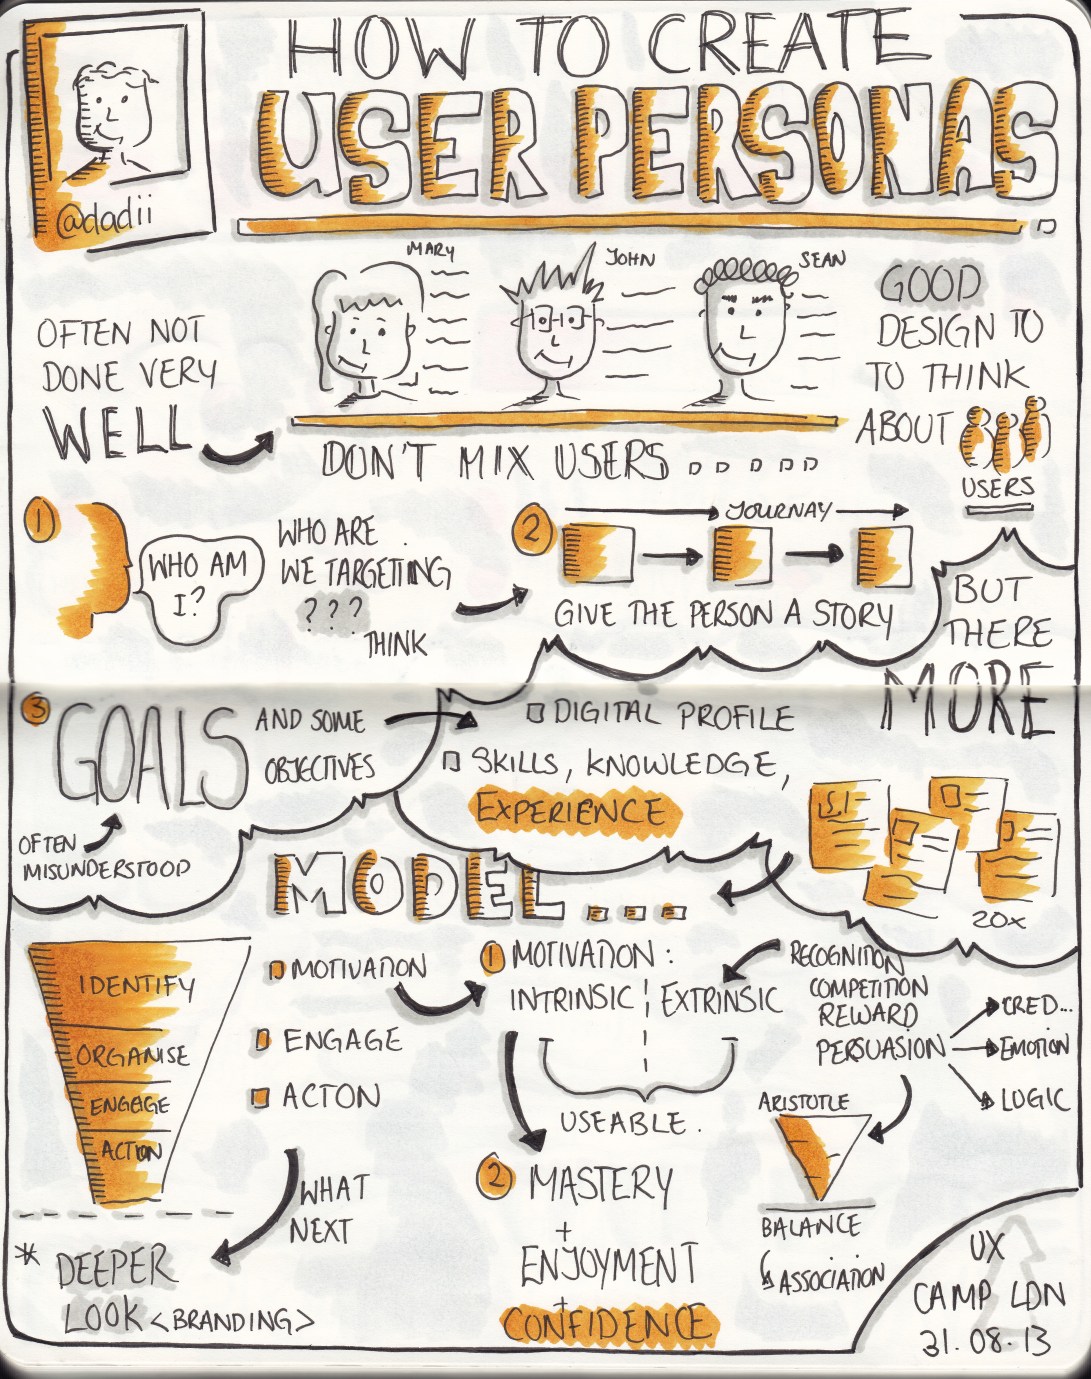 HOW TO CREATE
USER PERSONAS
@dadii
MARY
JOHN
SEAN
OFTEN NOT
DONE VERY
WELL
DON'T MIX USERS
GOOD
DESIGN TO
TO THINK
ABOUT
USERS
1
WHO AM
I?
WHO ARE
WE TARGETTING
???
THINK
2
JOURNAY
GIVE THE PERSON A STORY
BUT
THERE
MORE
3
GOALS
AND SOME
OBJECTIVES
OFTEN
MISUNDERSTOOD
DIGITAL PROFILE
SKILLS, KNOWLEDGE,
EXPERIENCE
20x
MODEL...
IDENTIFY
ORGANISE
ENGAGE
ACTION
MOTIVATION
ENGAGE
ACTON
WHAT
NEXT
* DEEPER
LOOK <BRANDING>
1 MOTIVATION:
INTRINSIC ¦ EXTRINSIC
USEABLE.
2 MASTERY
+
ENJOYMENT
+
CONFIDENCE
RECOGNITION
COMPETITION
REWARD
PERSUASION
CRED...
EMOTION
LOGIC
ARISTOTLE
BALANCE
ASSOCIATION
UX
CAMP LDN
31.08.13